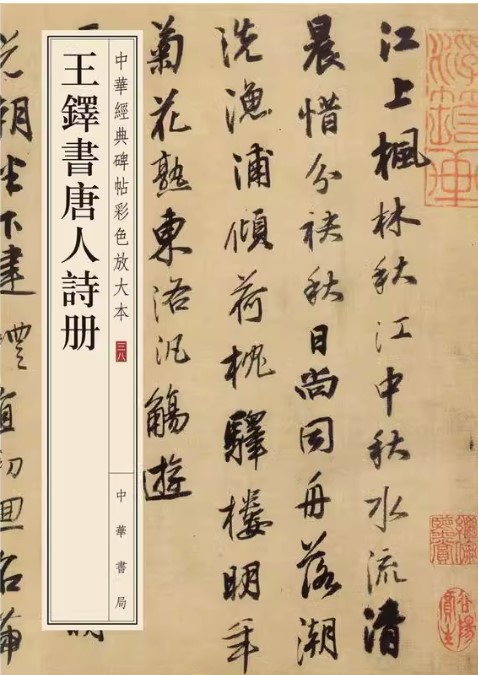 江上楓林秋江中秋水流清
晨惜分袂秋日尚同舟落潮
洗漁浦傾荷枕驛樓明年
菊花熟東洛汎觴遊
中華經典碑帖彩色放大本
三八
中華書局
王鐸書唐人詩册
朝坐下建禮直初迴名